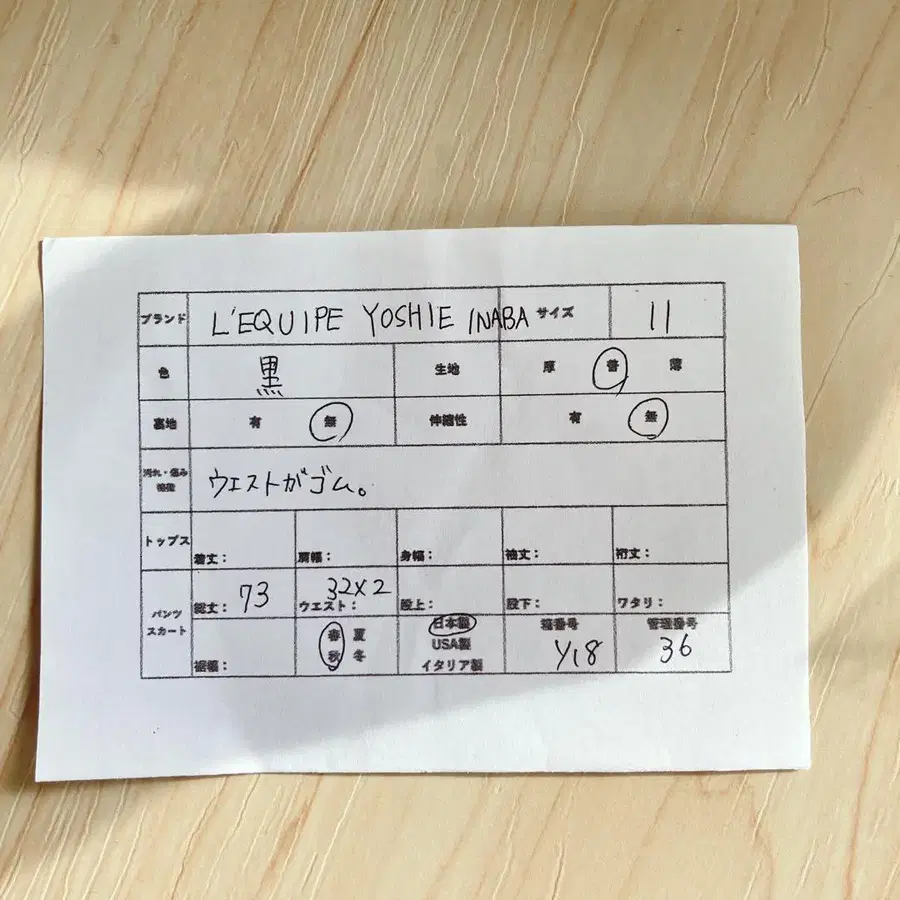 ブランド L'EQUIPE YOSHIE INABA サイズ 11
色 黒 生地 厚 普 薄
裏地 有 無 伸縮性 有 無
汚れ・傷み
ウエストがゴム。
トップス 着丈： 肩幅： 身幅： 袖丈： 裄丈：
パンツ
スカート
総丈：73 ウエスト：32×2 股上： 股下： ワタリ：
裾幅： 春 夏
秋 冬
日本製
USA製
イタリア製
箱番号
Y18
管理番号
36